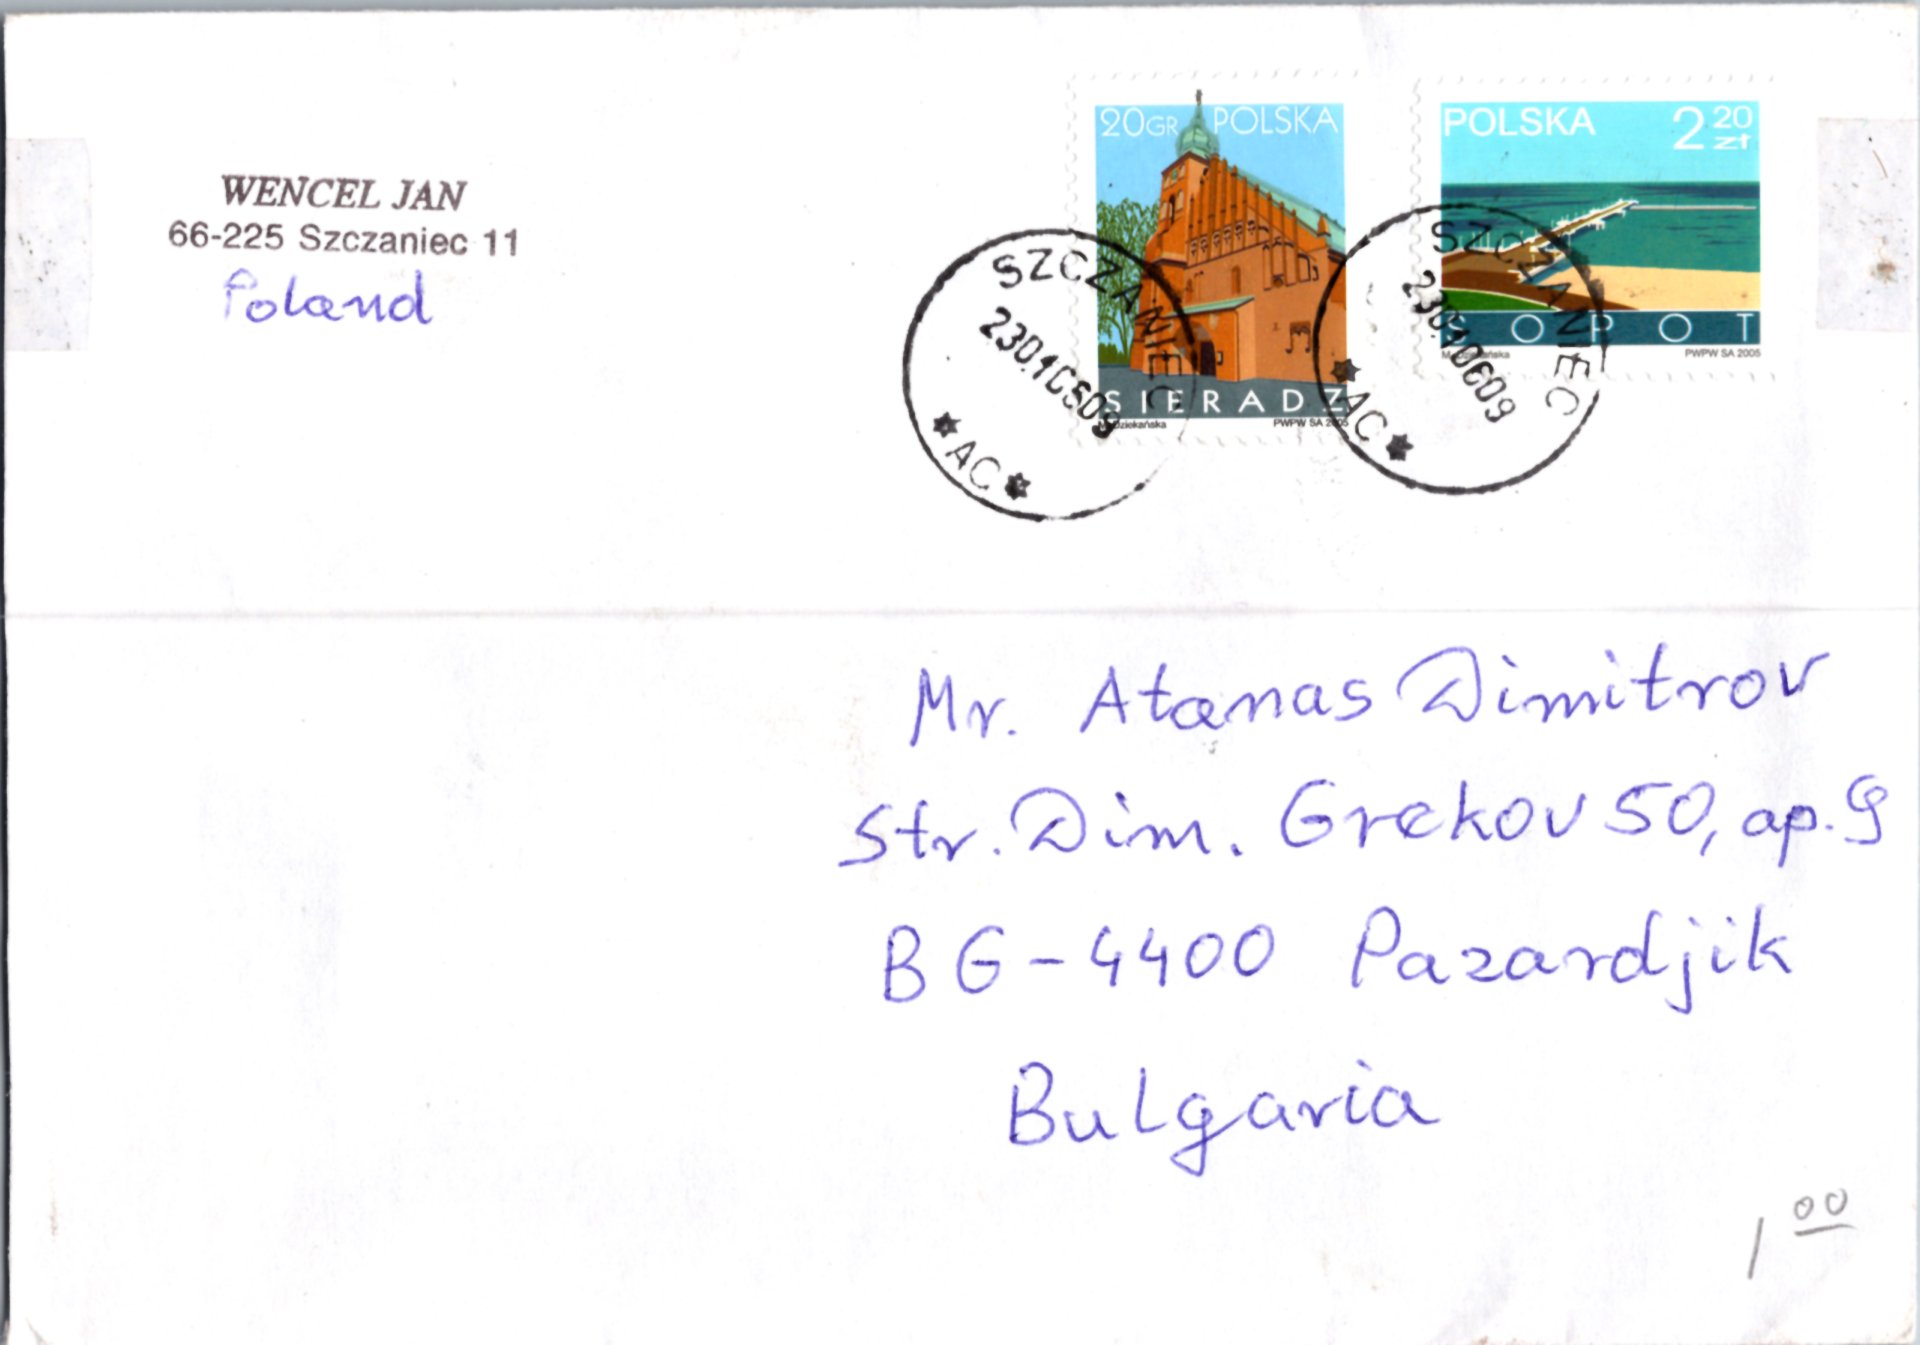 WENCEL JAN
66-225 Szczaniec 11
Poland
20GR POLSKA
SIERADZ
M. Dziekańska PWPW SA 2005
POLSKA 2 20 zł
SOPOT
M. Dziekańska PWPW SA 2005
SZCZANIEC
* AC *
SZCZANIEC
* AC *
Mr. Atanas Dimitrov
Str. Dim. Grekov 50, ap. 9
BG-4400 Pazardjik
Bulgaria
1 00